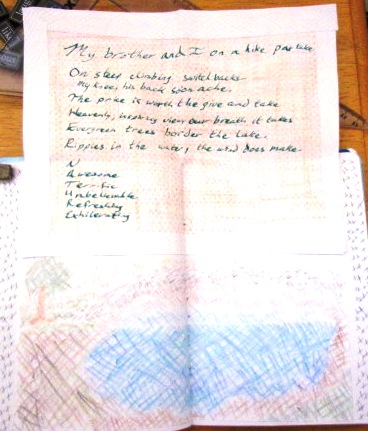 My brother and I on a hike partake
On steep climbing switchbacks
My knees, his back soon ache.
The prize is worth the give and take
Heavenly, inspiring view our breath it takes
Evergreen trees border the lake.
Ripples in the water, the wind does make.
N
Awesome
Terrific
Unbelievable
Refreshly
Exhilerating